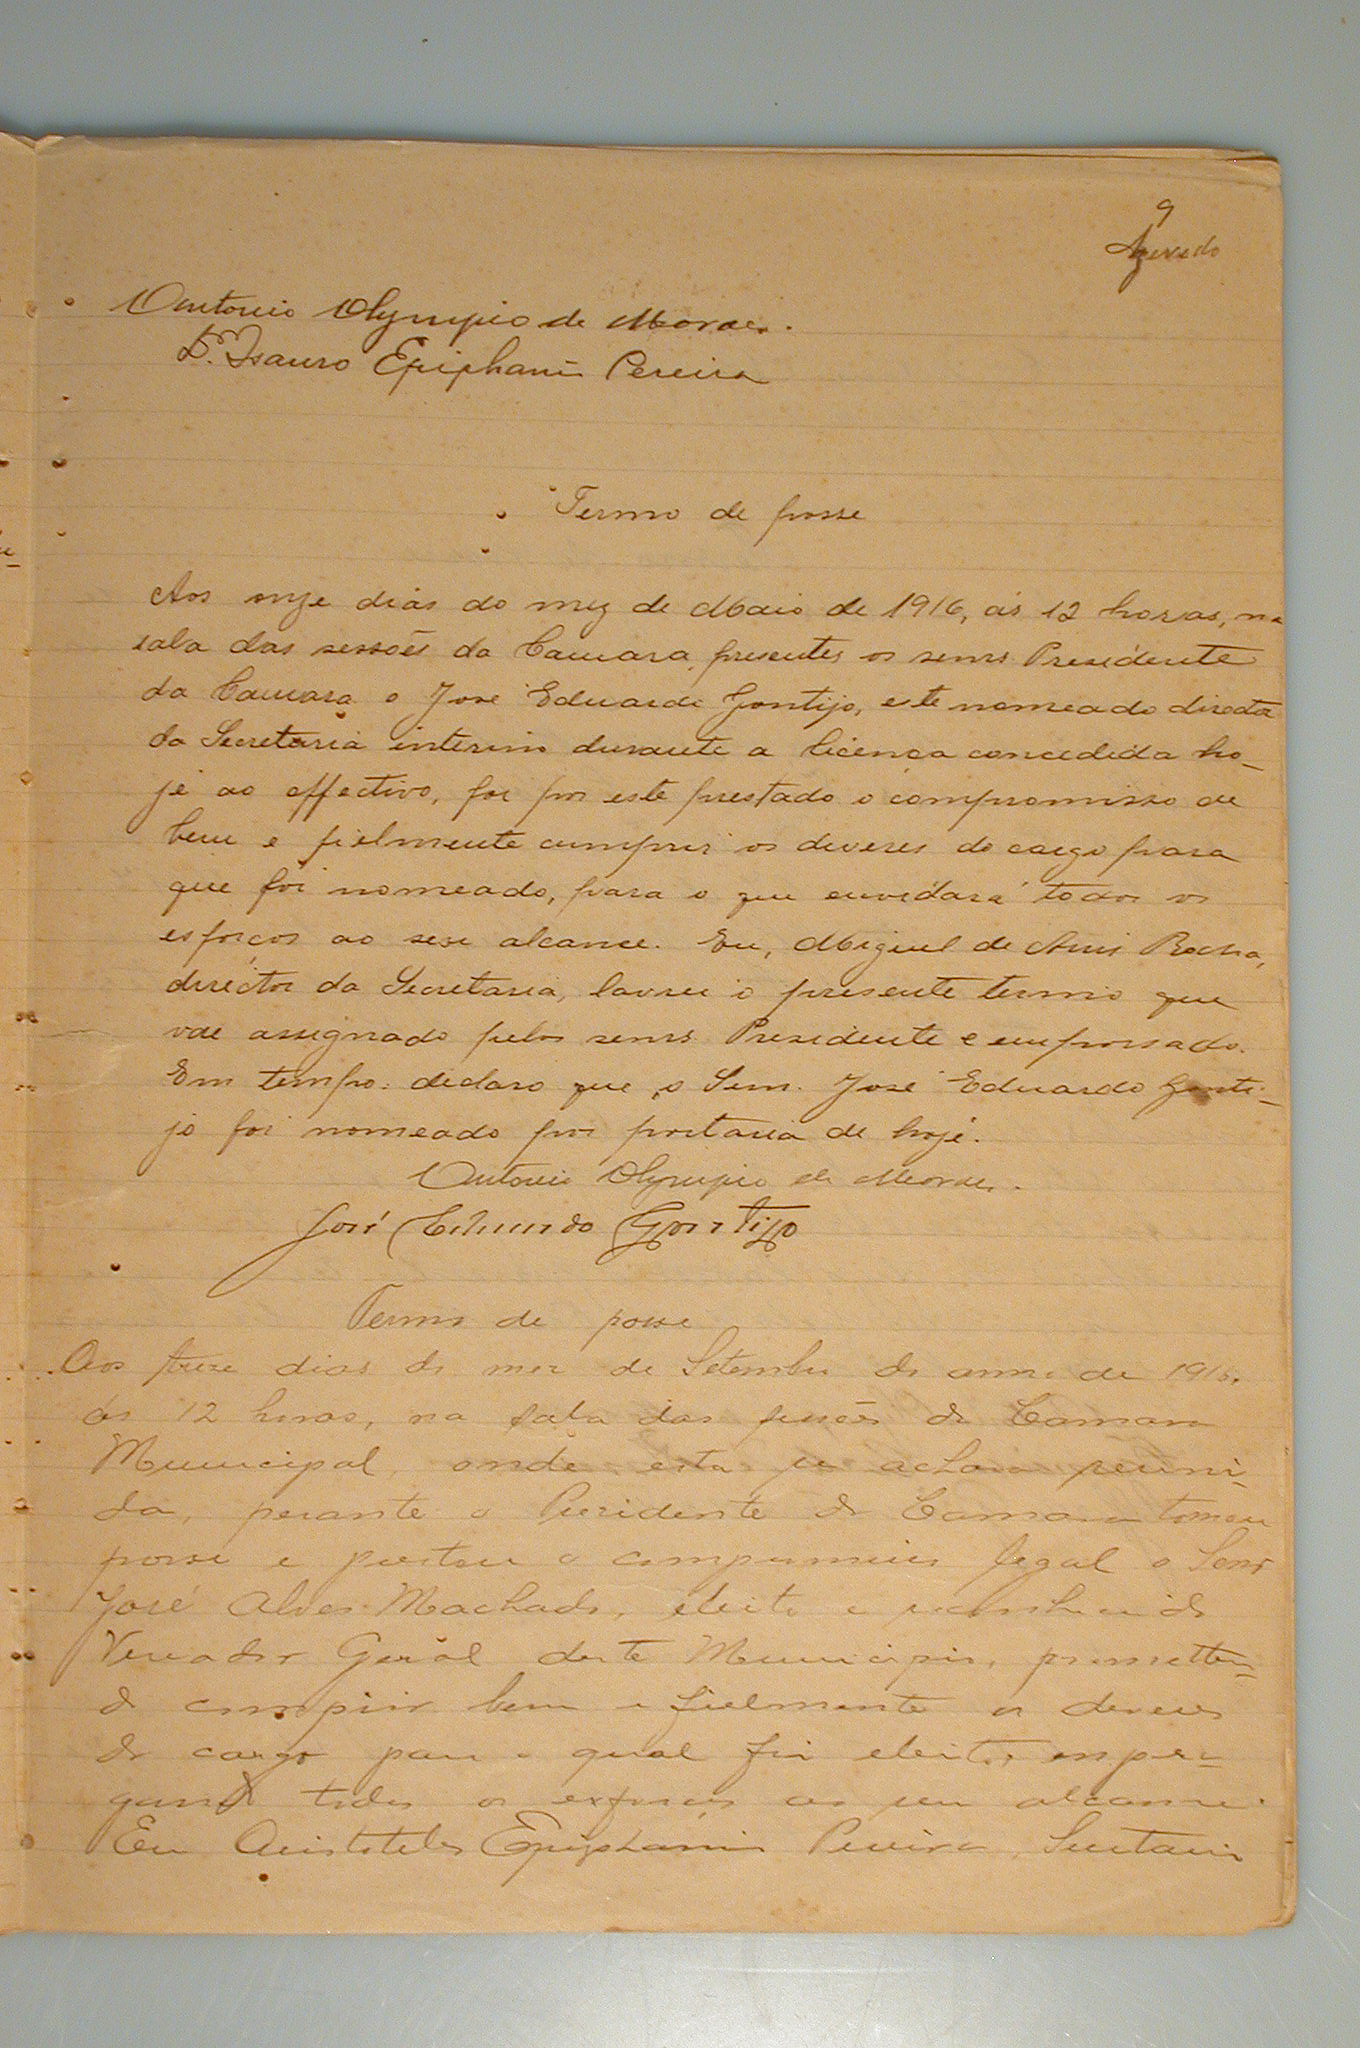 9
Azevedo
Antonio Olympio de Moraes.
Dr. Isauro Epiphanio Pereira
Termo de posse
Aos onze dias do mez de Maio de 1916, ás 12 horas, na
sala das sessões da Camara, presentes os senrs. Presidente
da Camara e José Eduardo Gontijo, este nomeado director
da Secretaria interino durante a licença concedida ho-
je ao effectivo, foi por este prestado o compromisso de
bem e fielmente cumprir os deveres do cargo para
que foi nomeado, para o que envidará todos os
esforços ao seu alcance. Eu, Miguel de Assis Rocha,
director da Secretaria, lavrei o presente termo que
vae assignado pelos senrs. Presidente e empossado.
Em tempo: declaro que o Senr. José Eduardo Gonti-
jo foi nomeado por portaria de hoje.
Antonio Olympio de Moraes.
José Eduardo Gontijo
Termo de posse
Aos treze dias do mez de Setembro do anno de 1916,
ás 12 horas, na sala das sessões da Camara
Municipal, onde esta se achava reuni-
da, perante o Presidente da Camara tomou
posse e prestou o compromisso legal o Senr.
José Alves Machado, eleito e reconhecido
Vereador Geral deste Municipio, prometten-
do cumprir bem e fielmente os deveres
do cargo para o qual foi eleito, empre-
gando todos os esforços ao seu alcance.
Eu Aristoteles Epiphanio Pereira, Secretario